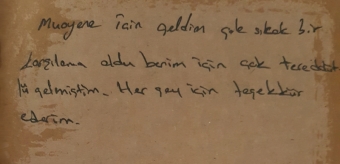 Muayene için geldim çok sıcak bir
karşılama oldu benim için çok tereddüt
lü gelmiştim. Her şey için teşekkür
ederim.